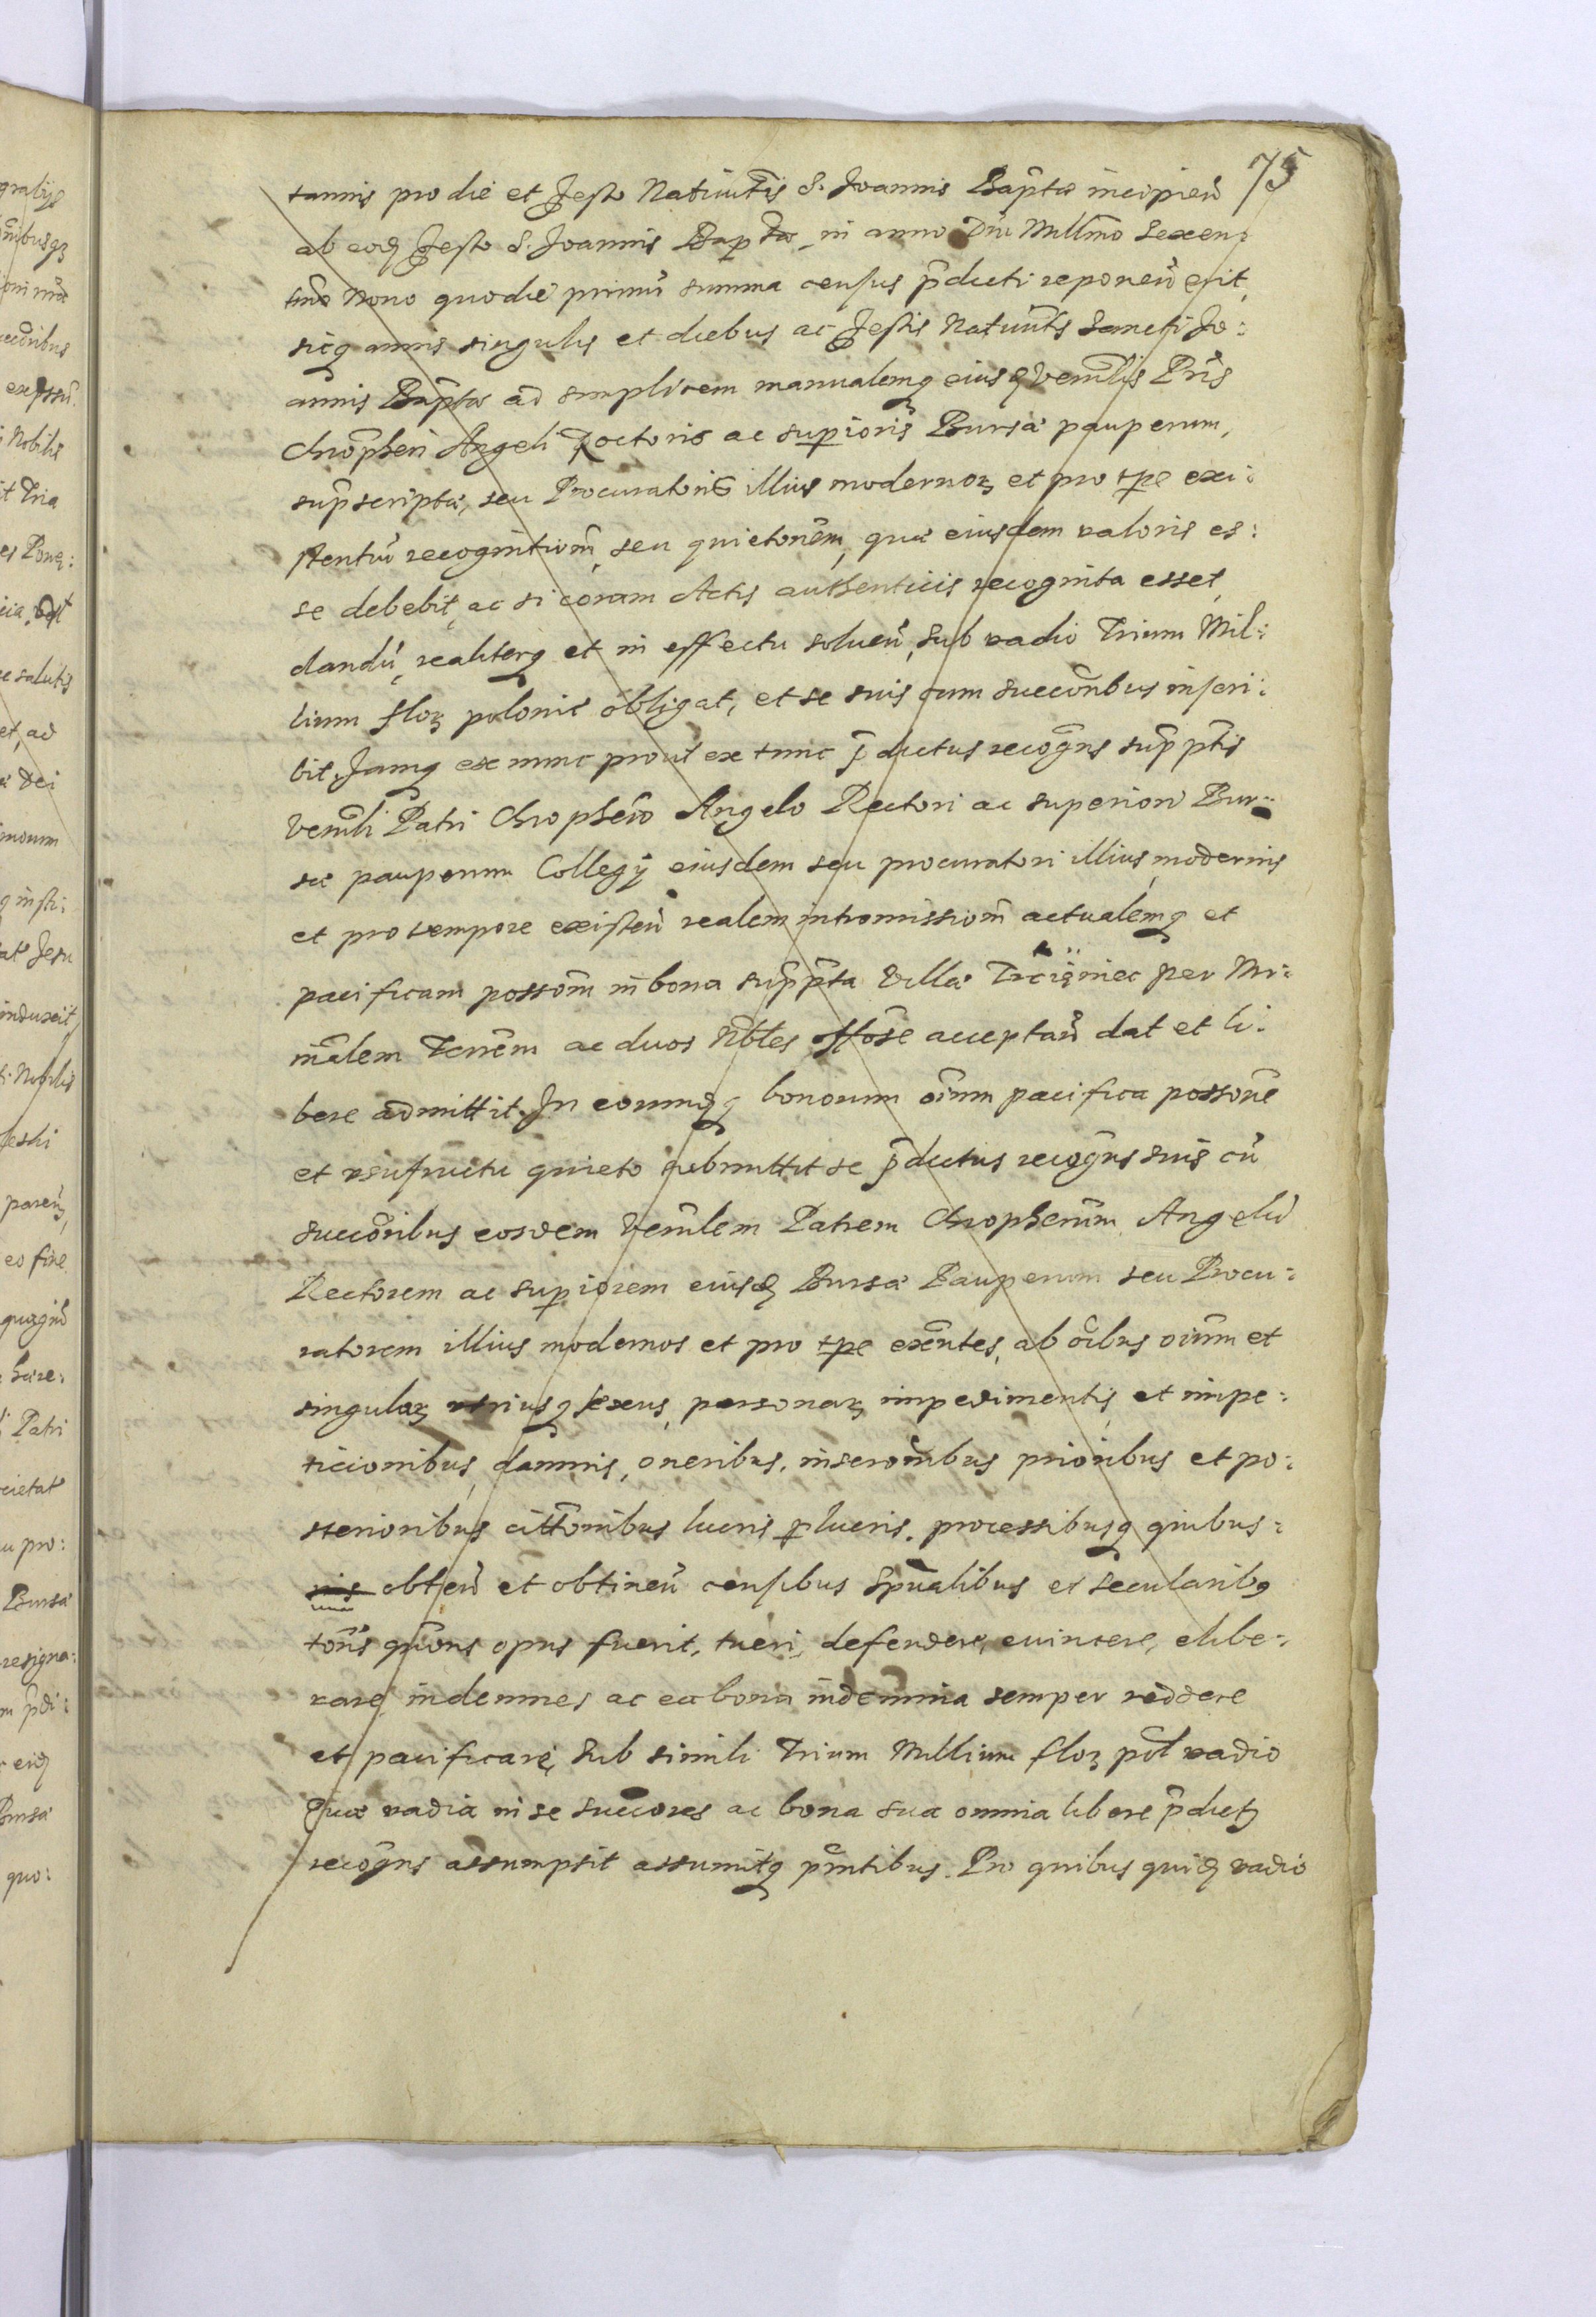 75
tannis pro die et Festo Natiuitis S. Joannis Baptæ incipien
ab eod Festo S. Joannis Baptæ in anno Dni Millmo Sexen:
tmo Nono quo die primũ summa census p̃dicti reponeñ erit,
sicq annis singulis et diebus ac Festis Natiuits Sancti Jo:
annis Baptæ ad simplicem manualemq eiusd Venlis Pris
Chrõpheri Angeli Rectoris ac supioris Bursæ pauperum,
sup̃scriptæ, seu Procuratoris illius modernoꝝ et pro tp̃e exi:
stentiũ recognitionẽ, seu quietonẽm, quæ eiusdem valoris es:
se debebit, ac si coram Actis authenticis recognita esset,
dandũ, realiterq et in effectu solueñ, sub vadio Trium Mil:
lium floꝝ polonic obligat, et se suis cum succõribus inscri:
bit. Jamq ex nunc prout ex tunc p̃dictus recogñs sup̃p̃tis
Venñli Patri Chrophero Angelo Rectori ac superiori Bur:
sæ pauperum Collegij eiusdem seu procuratori illius, modernis
et pro tempore existeñ realem intromissionẽ actualemq et
pacificam possonẽ in bona sup̃p̃ta Villæ Trcięniec per Mi:
nĩalem Terrẽm ac duos Nobles offose acceptañ dat et li:
bere admittit. In eorumdq bonorum oĩum pacifica possonẽ
et vsufructu quieto submittit se p̃dictus recogñs suis cũ
succõribus eosdem Venĩlem Patrem Chropherum Angelũ
Rectorem ac supiorem eiusd Bursæ Pauperum seu Procu:
ratorem illius modernos et pro tp̃e exẽntes, ab oĩbus oĩum et
singulaꝝ vtriusq sexus, personaꝝ impedimentis, et impe:
ticionibus, damnis, oneribus, inscronibus prioribus et po:
sterioribus, cittõnibus lucris plucris, processibusq quibus:
obteñ et obtineñ censibus Spũalibus et secularibq
tons quõns opus fuerit, tueri, defendere, euincere, elibe:
rare, indemnes ac ea bona indemnia semper reddere
et pacificare, sub simili Trium Millium floꝝ pol vadio
Quæ vadia in se succores ac bona sua omnia libere p̃dictq
recogñs assumpsit assumitq p̃ntibus. Pro quibus quid vadio